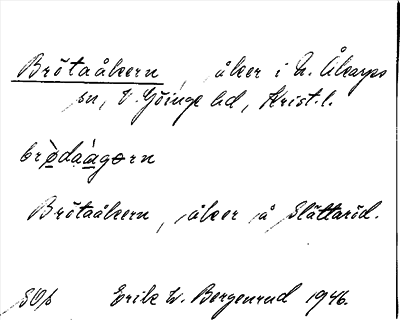 Brötaåkern, åker i N. Åkarps
sn, V. Göinge hd, Krist. l.
brò̲daà̲gərn
Brötaåkern, åker å Slättaröd.
SOs Erik W. Bergenrud 1946.